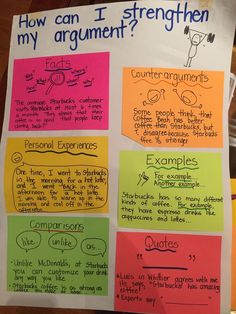 How can I strengthen
my argument?
Facts
Who?
What?
Why?
The common Starbucks customer
visits Starbucks at least 6 times
a month. This shows that their
coffee is so good that people keep
coming back!
Counterarguments
Some people think that
Coffee Bean has better
coffee than Starbucks, but
I disagree because Starbucks
is stronger
Personal Experiences
One time, I went to Starbucks
in the morning for a hot latte,
and I went back in the
afternoon for a
I was able to warm up in the
morning and cool off in the
afternoon.
Examples
For example...
Another example...
Starbucks has so many different
kinds of coffee. For example,
they have espresso drinks like
cappuccinos and lattes...
Comparisons
like...
unlike...
as...
Unlike McDonald's, at Starbucks
you can customize your drink
any way you like.
Starbucks coffee is as strong as
Quotes
Luis in Whittier agrees with me
He says, "Starbucks has amazing
coffee!"
Experts say